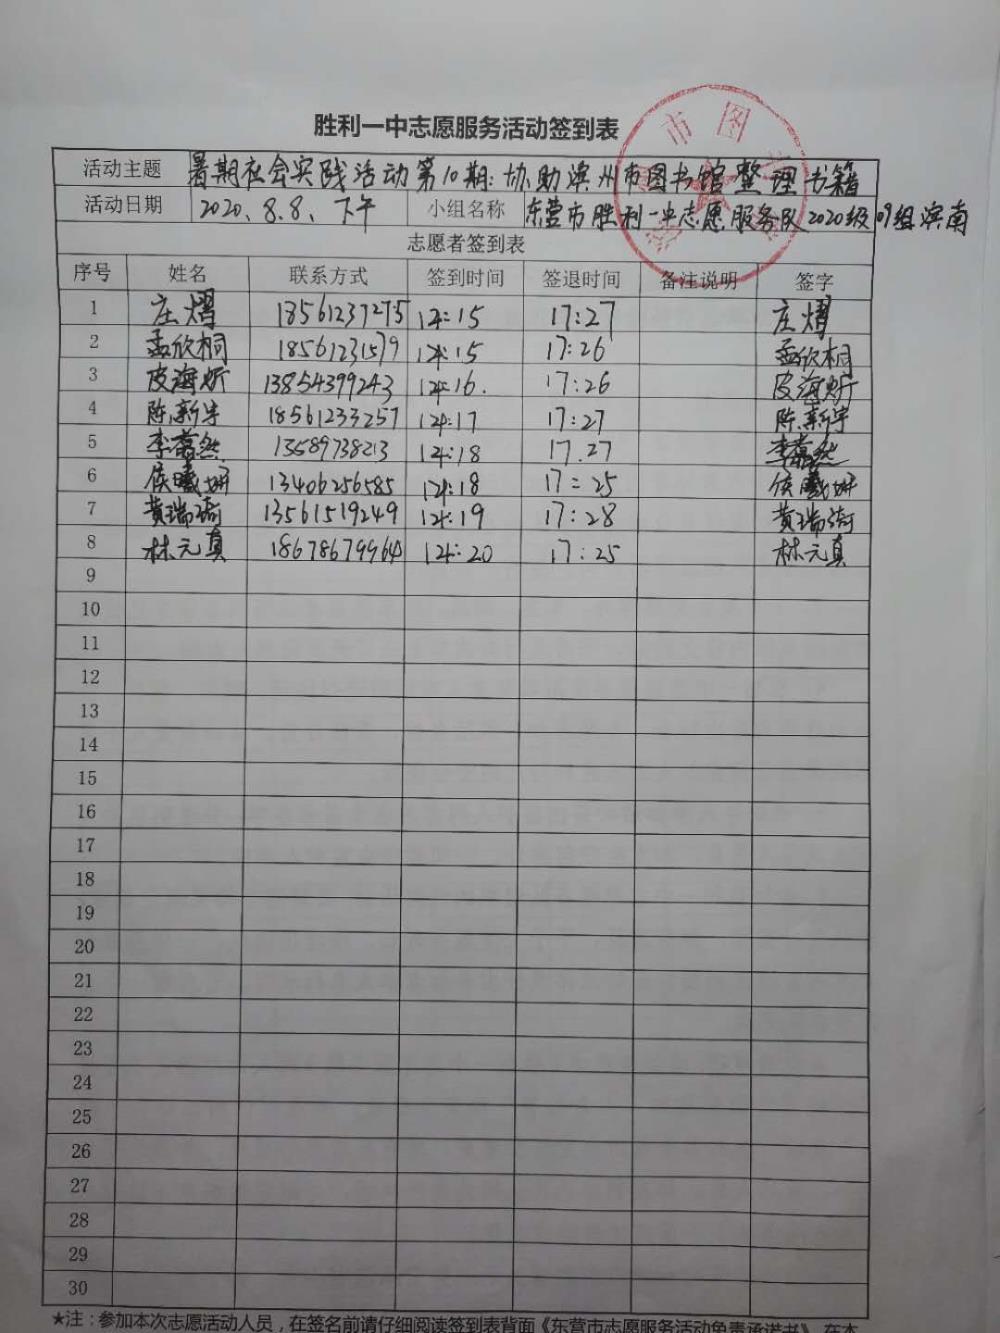 胜利一中志愿服务活动签到表
活动主题 暑期社会实践活动第10期:协助滨州市图书馆整理书籍
活动日期 2020.8.8、下午 小组名称 东营市胜利一中志愿服务队2020级09组滨南
志愿者签到表
序号 姓名 联系方式 签到时间 签退时间 备注说明 签字
1 庄熠 18561237275 14:15 17:27 庄熠
2 孟欣桐 18561231579 14:15 17:26 孟欣桐
3 皮海炘 13854399243 14:16. 17:26 皮海炘
4 陈新宇 18561233257 14:17 17:27 陈新宇
5 李嘉然 13589738213 14:18 17.27 李嘉然
6 侯曦妍 13406256585 14:18 17:25 侯曦妍
7 黄瑞琦 13561519249 14:19 17:28 黄瑞琦
8 林元真 18678679964 14:20 17:25 林元真
9
10
11
12
13
14
15
16
17
18
19
20
21
22
23
24
25
26
27
28
29
30
*注:参加本次志愿活动人员,在签名前请仔细阅读签到表背面《东营市志愿服务活动免责承诺书》,在本